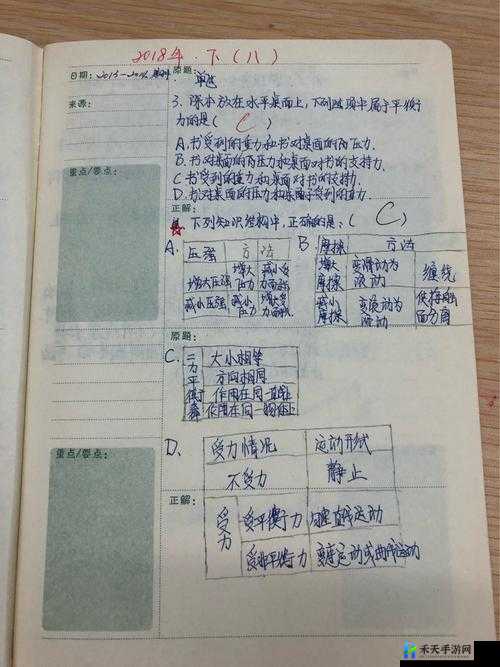 2018年.下(八)
日期:
原题:
单选
来源:
3. 将本放在水平桌面上,下列选项中属于平衡
力的是( C )
重点/要点:
A.书受到的重力和书对桌面的压力.
B.书对桌面的压力和桌面对书的支持力.
C.书受到的重力和桌面对书的支持力.
D.书对桌面的压力和桌子受到的重力.
正解:
下列知识结构中,正确的是:( C )
A. 压强 方法
增大压强 增大压力 减小受力面积
减小压强 减小压力 增大受力面积
B. 摩擦 方法
增大摩擦 变滑动为滚动 缠线
减小摩擦 变滚动为滑动 使接触面分离
原题:
C. 二力平衡 大小相等
方向相同
作用在同一直线上
作用在同一物体上
重点/要点:
D、 受力情况 运动形式
不受力 静止
正解:
受力 受平衡力 匀速直线运动
受非平衡力 变速运动或曲线运动
禾天手游网